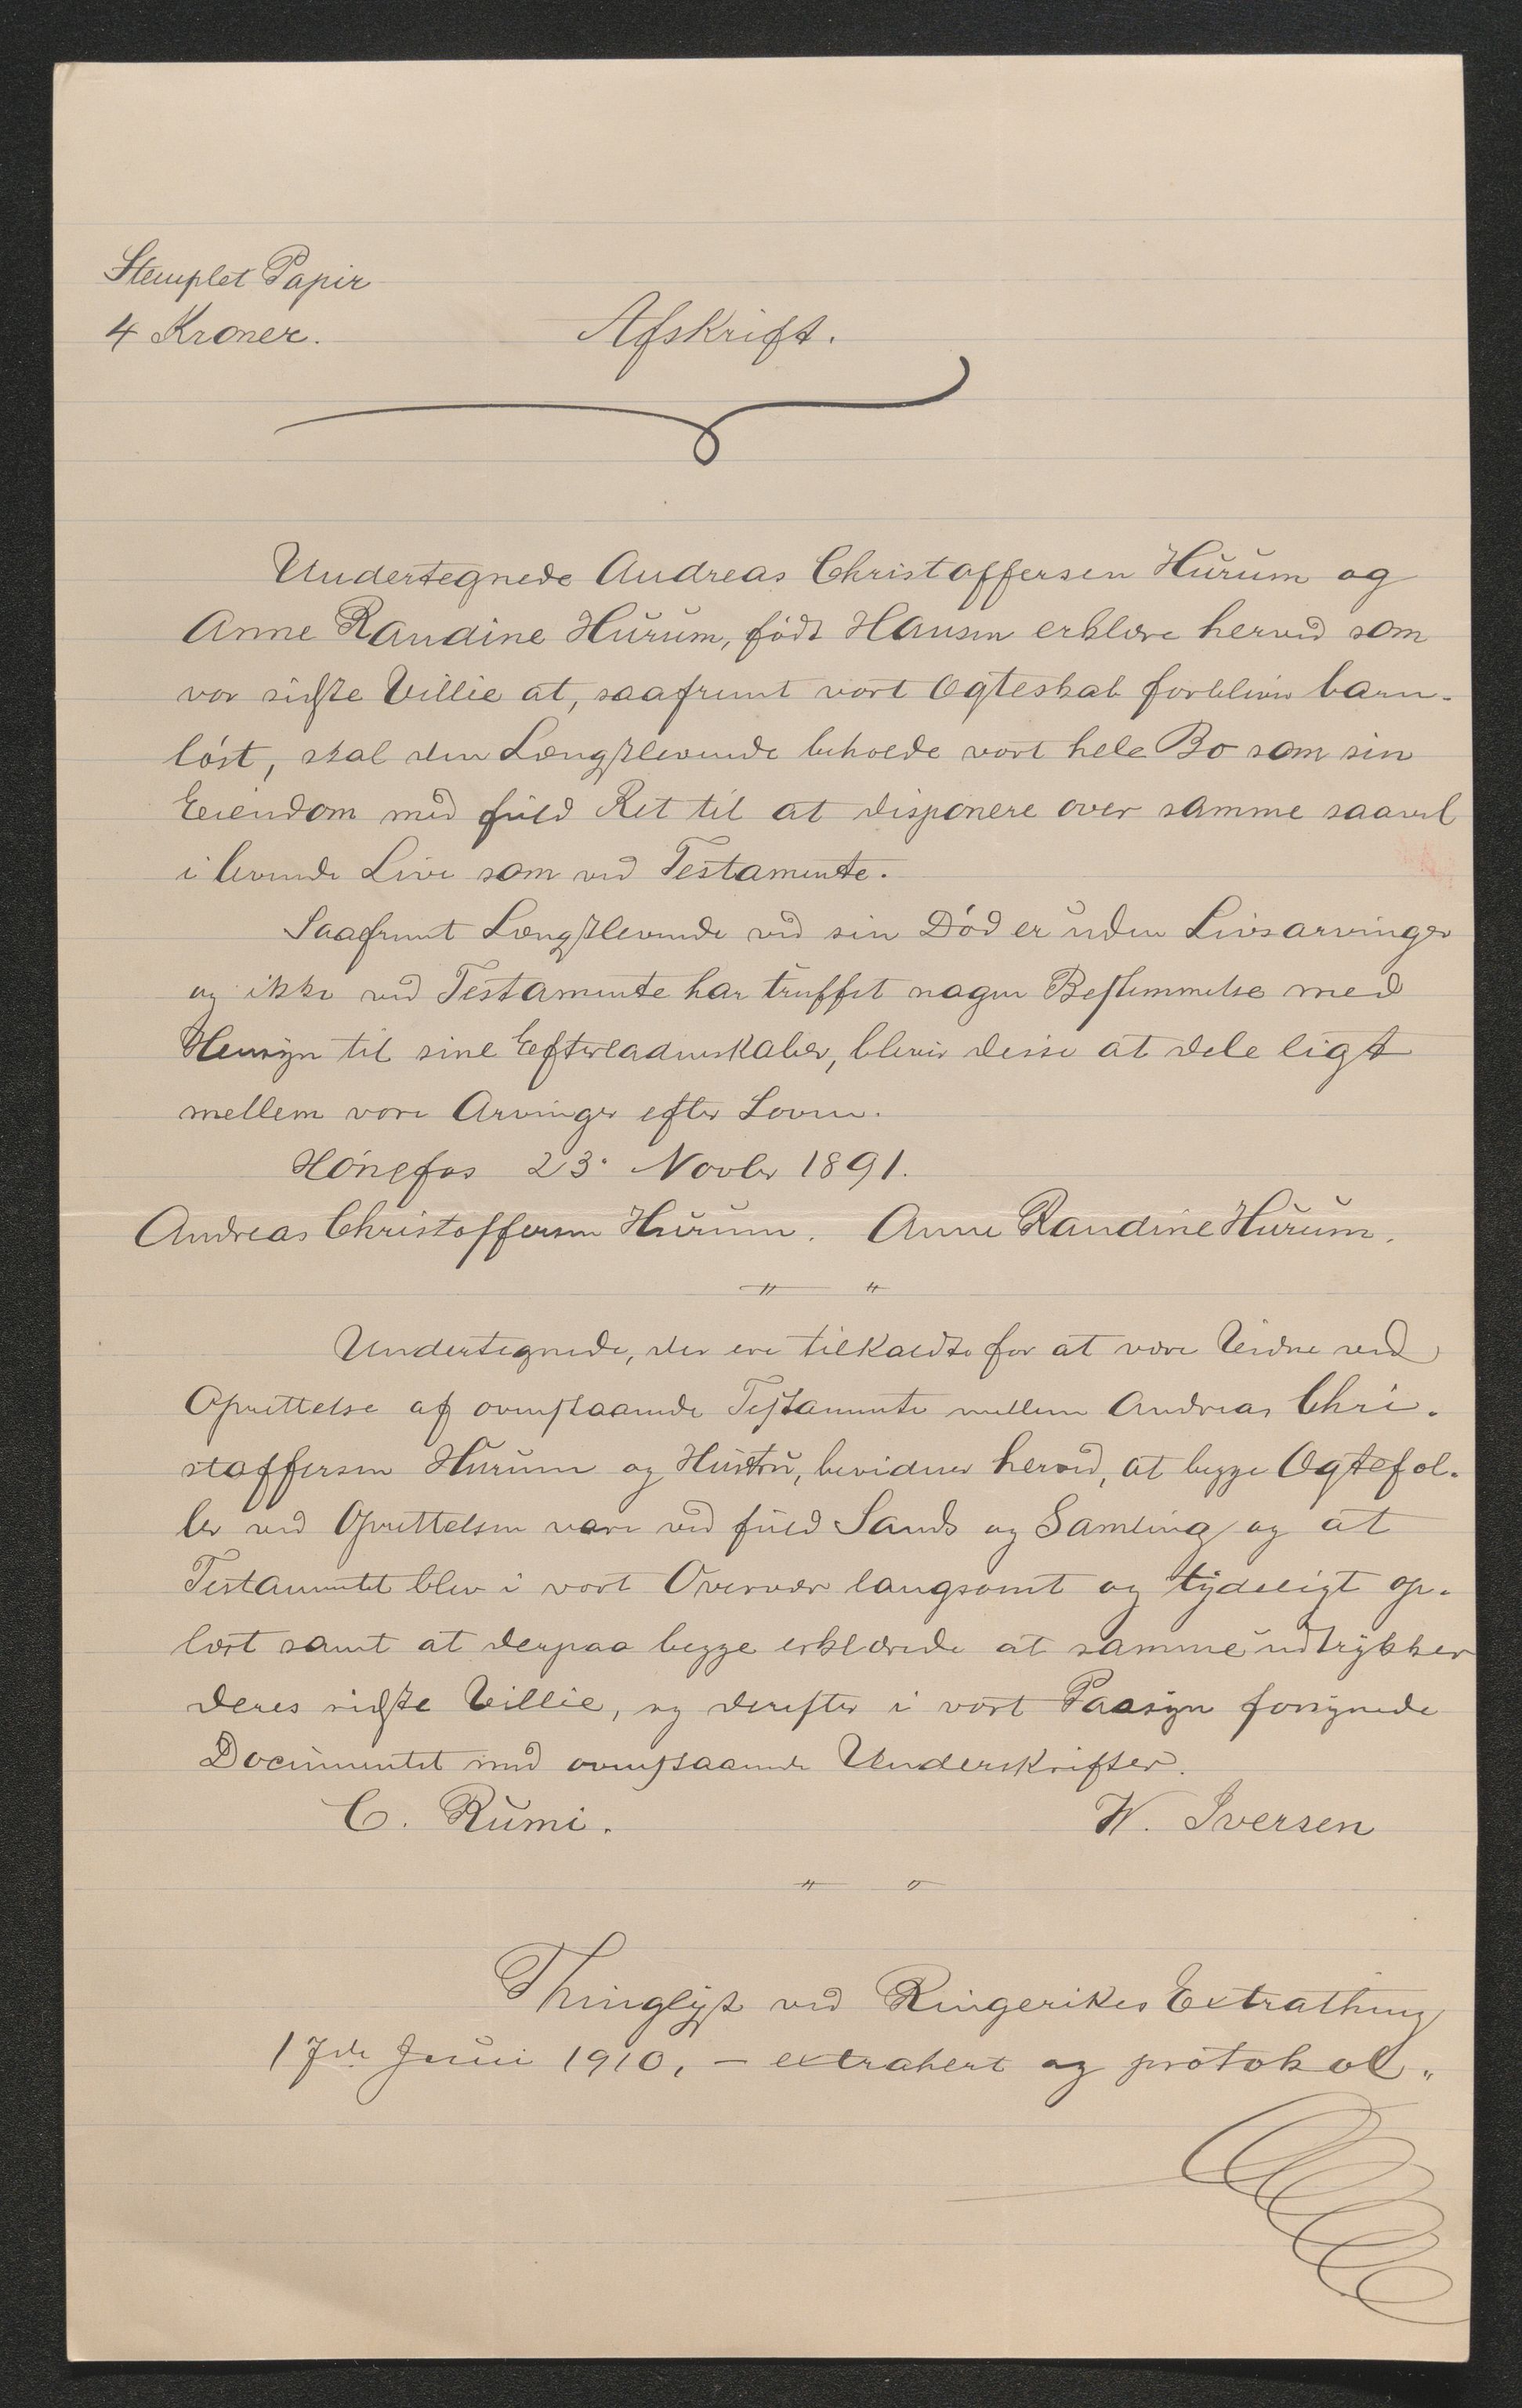 Stemplet Papir
4 Kroner.
Afskrift.
Undertegnede Andreas Christoffersen Hurum og
Anne Randine Hurum, født Hansen erklære herved som
vor sidste Villie at, saafremt vort Ægteskab forbliver barn-
løst, skal den Længstlevende beholde vort hele Bo som sin
Eiendom med fuld Ret til at disponere over samme saavel
i levende Live som ved Testamente.
Saafremt Længstlevende ved sin Død er uden Livsarvinger
og ikke ved Testamente har truffet nogen Bestemmelse med
Hensyn til sine Efterladenskaber, bliver disse at dele ligt
mellem vore Arvinger efter Loven.
Hønefos 23. Novbr 1891.
Andreas Christoffersen Hurum. Anne Randine Hurum.
Undertegnede, der ere tilkaldte for at være Vidne ved
Oprettelse af ovenstaaende Testamente mellem Andreas Chri-
stoffersen Hurum og Hustru, bevidner herved, at begge Ægtefol-
ler ved Oprettelsen vare ved fuld Sands og Samling og at
Testamentet blev i vort Overvær langsomt og tydeligt op-
læst samt at derpaa begge erklærede at samme udtrykker
deres sidste Villie, og derefter i vort Paasyn forsynede
Documentet med ovenstaaende Underskrifter.
C. Rumi. W. Iversen
Thinglyst ved Ringerikes Extrathing
17de Juni 1910, - extrahert og protokol.